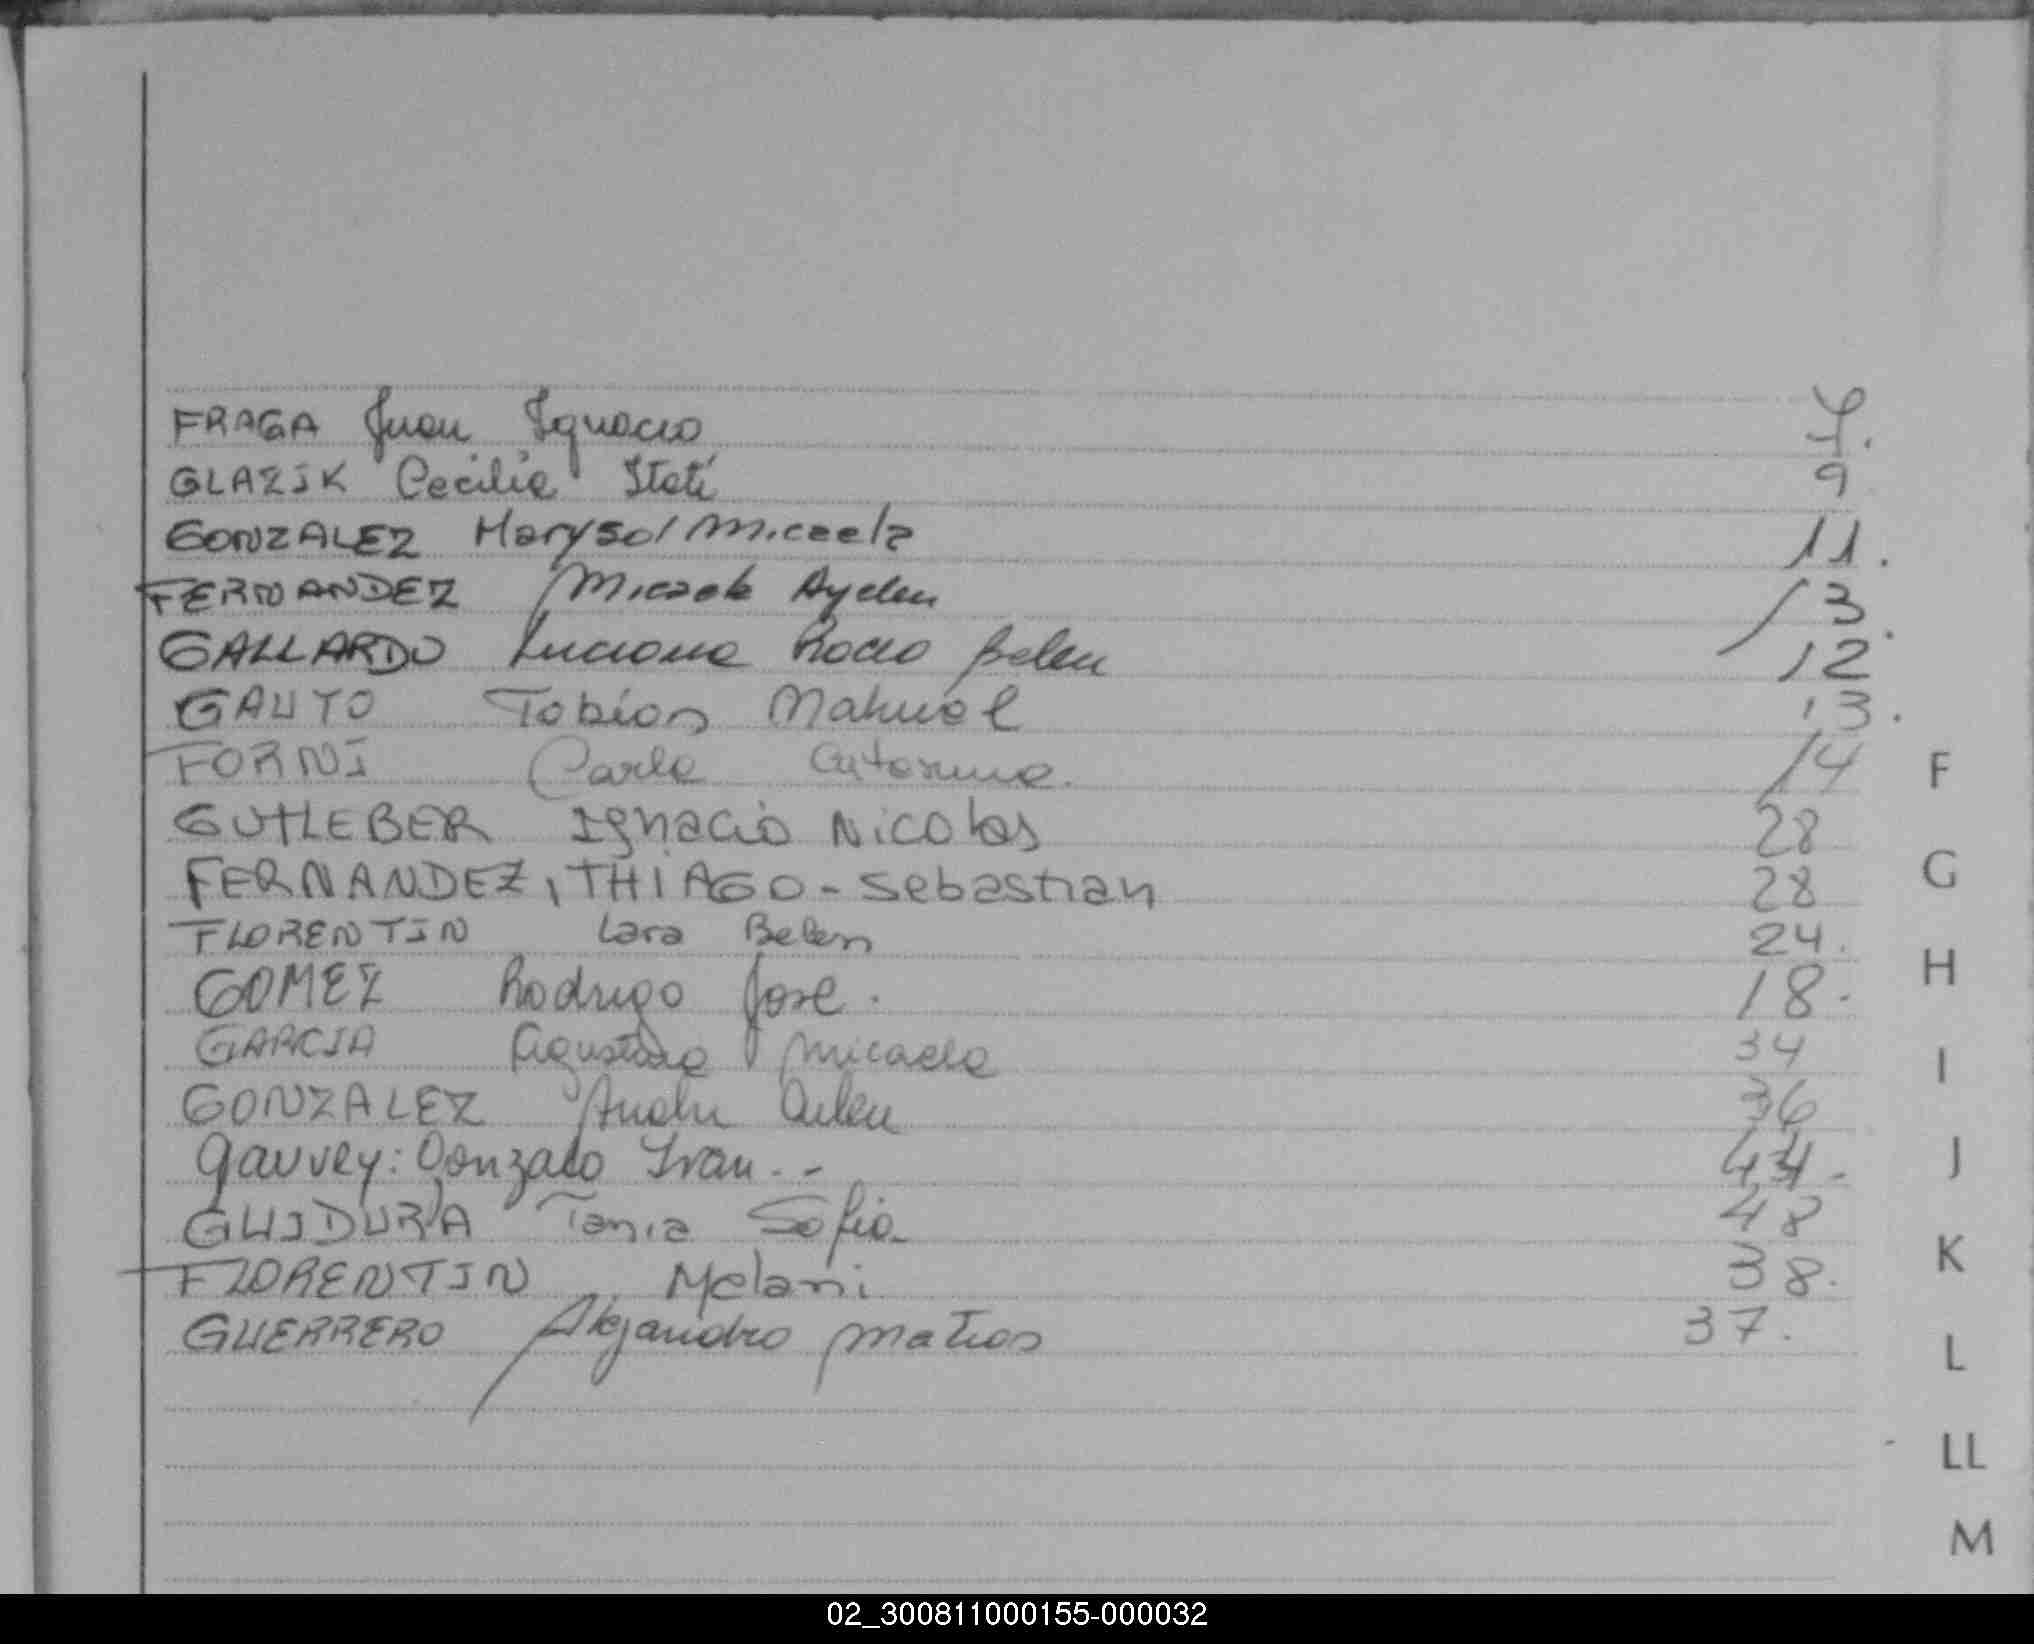 FRAGA Juan Ignacio 7.
GLAZIK Cecilia Itatí 9
GONZALEZ Marysol Micaela 11.
FERNANDEZ Micaela Ayelen 13.
GALLARDO Luciana Rocio Belen 12
GAUTO Tobias Mahuel 13.
FORNI Carla 14
F
GUTLEBER Ignacio Nicolas 28
FERNANDEZ, THIAGO - Sebastian 28
G
FLORENTIN Lara Belen 24.
H
GOMEZ Rodrigo Jose. 18.
GARCIA Agustina Micaela 34
I
GONZALEZ 36
gauvey: Gonzalo Ivan.-
J
GUIDURA Tania Sofia 48
K
FLORENTIN Melani 38.
GUERRERO Alejandro Matias 37.
L
LL
M
02_300811000155-000032